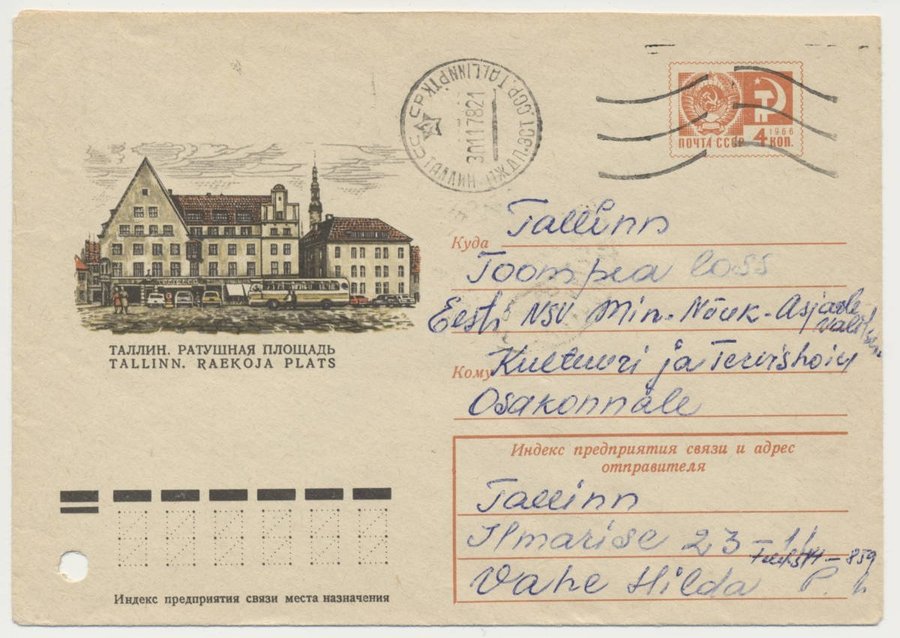 СССР. TALLINN PTK
30117821
ТАЛЛИН
1966
4
ПОЧТА СССР КОП.
Куда Tallinn
Toompea loss
Eesti NSV Min. Nõuk. Asjade
Valitsen
Кому Kultuuri ja Tervishoiu
Osakonnale
ТАЛЛИН. РАТУШНАЯ ПЛОЩАДЬ
TALLINN. RAEKOJA PLATS
Индекс предприятия связи и адрес
отправителя
Tallinn
Ilmarise 23-11
859
Vahe Hilda P.
Индекс предприятия связи места назначения